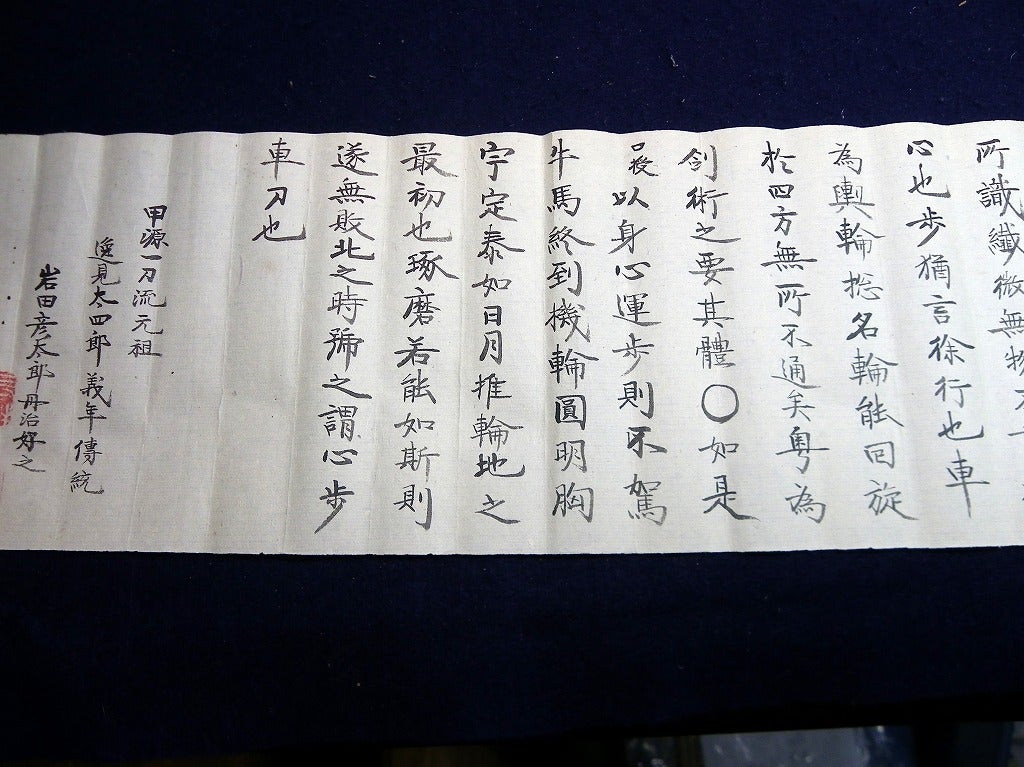 所識纖微無物不
心也歩猶言徐行也車
為輿輪惣名輪能回旋
於四方無所不通矣粤為
劍術之要其體〇如是
口後以身心運歩則不駕
牛馬終到機輪圓明胸
宇定泰如日月推輪地之
最初也琢磨若能如斯則
遂無敗北之時號之謂心歩
車刀也
甲源一刀流元祖
邊見太四郎義年傳統
岩田彦太郎丹治好之